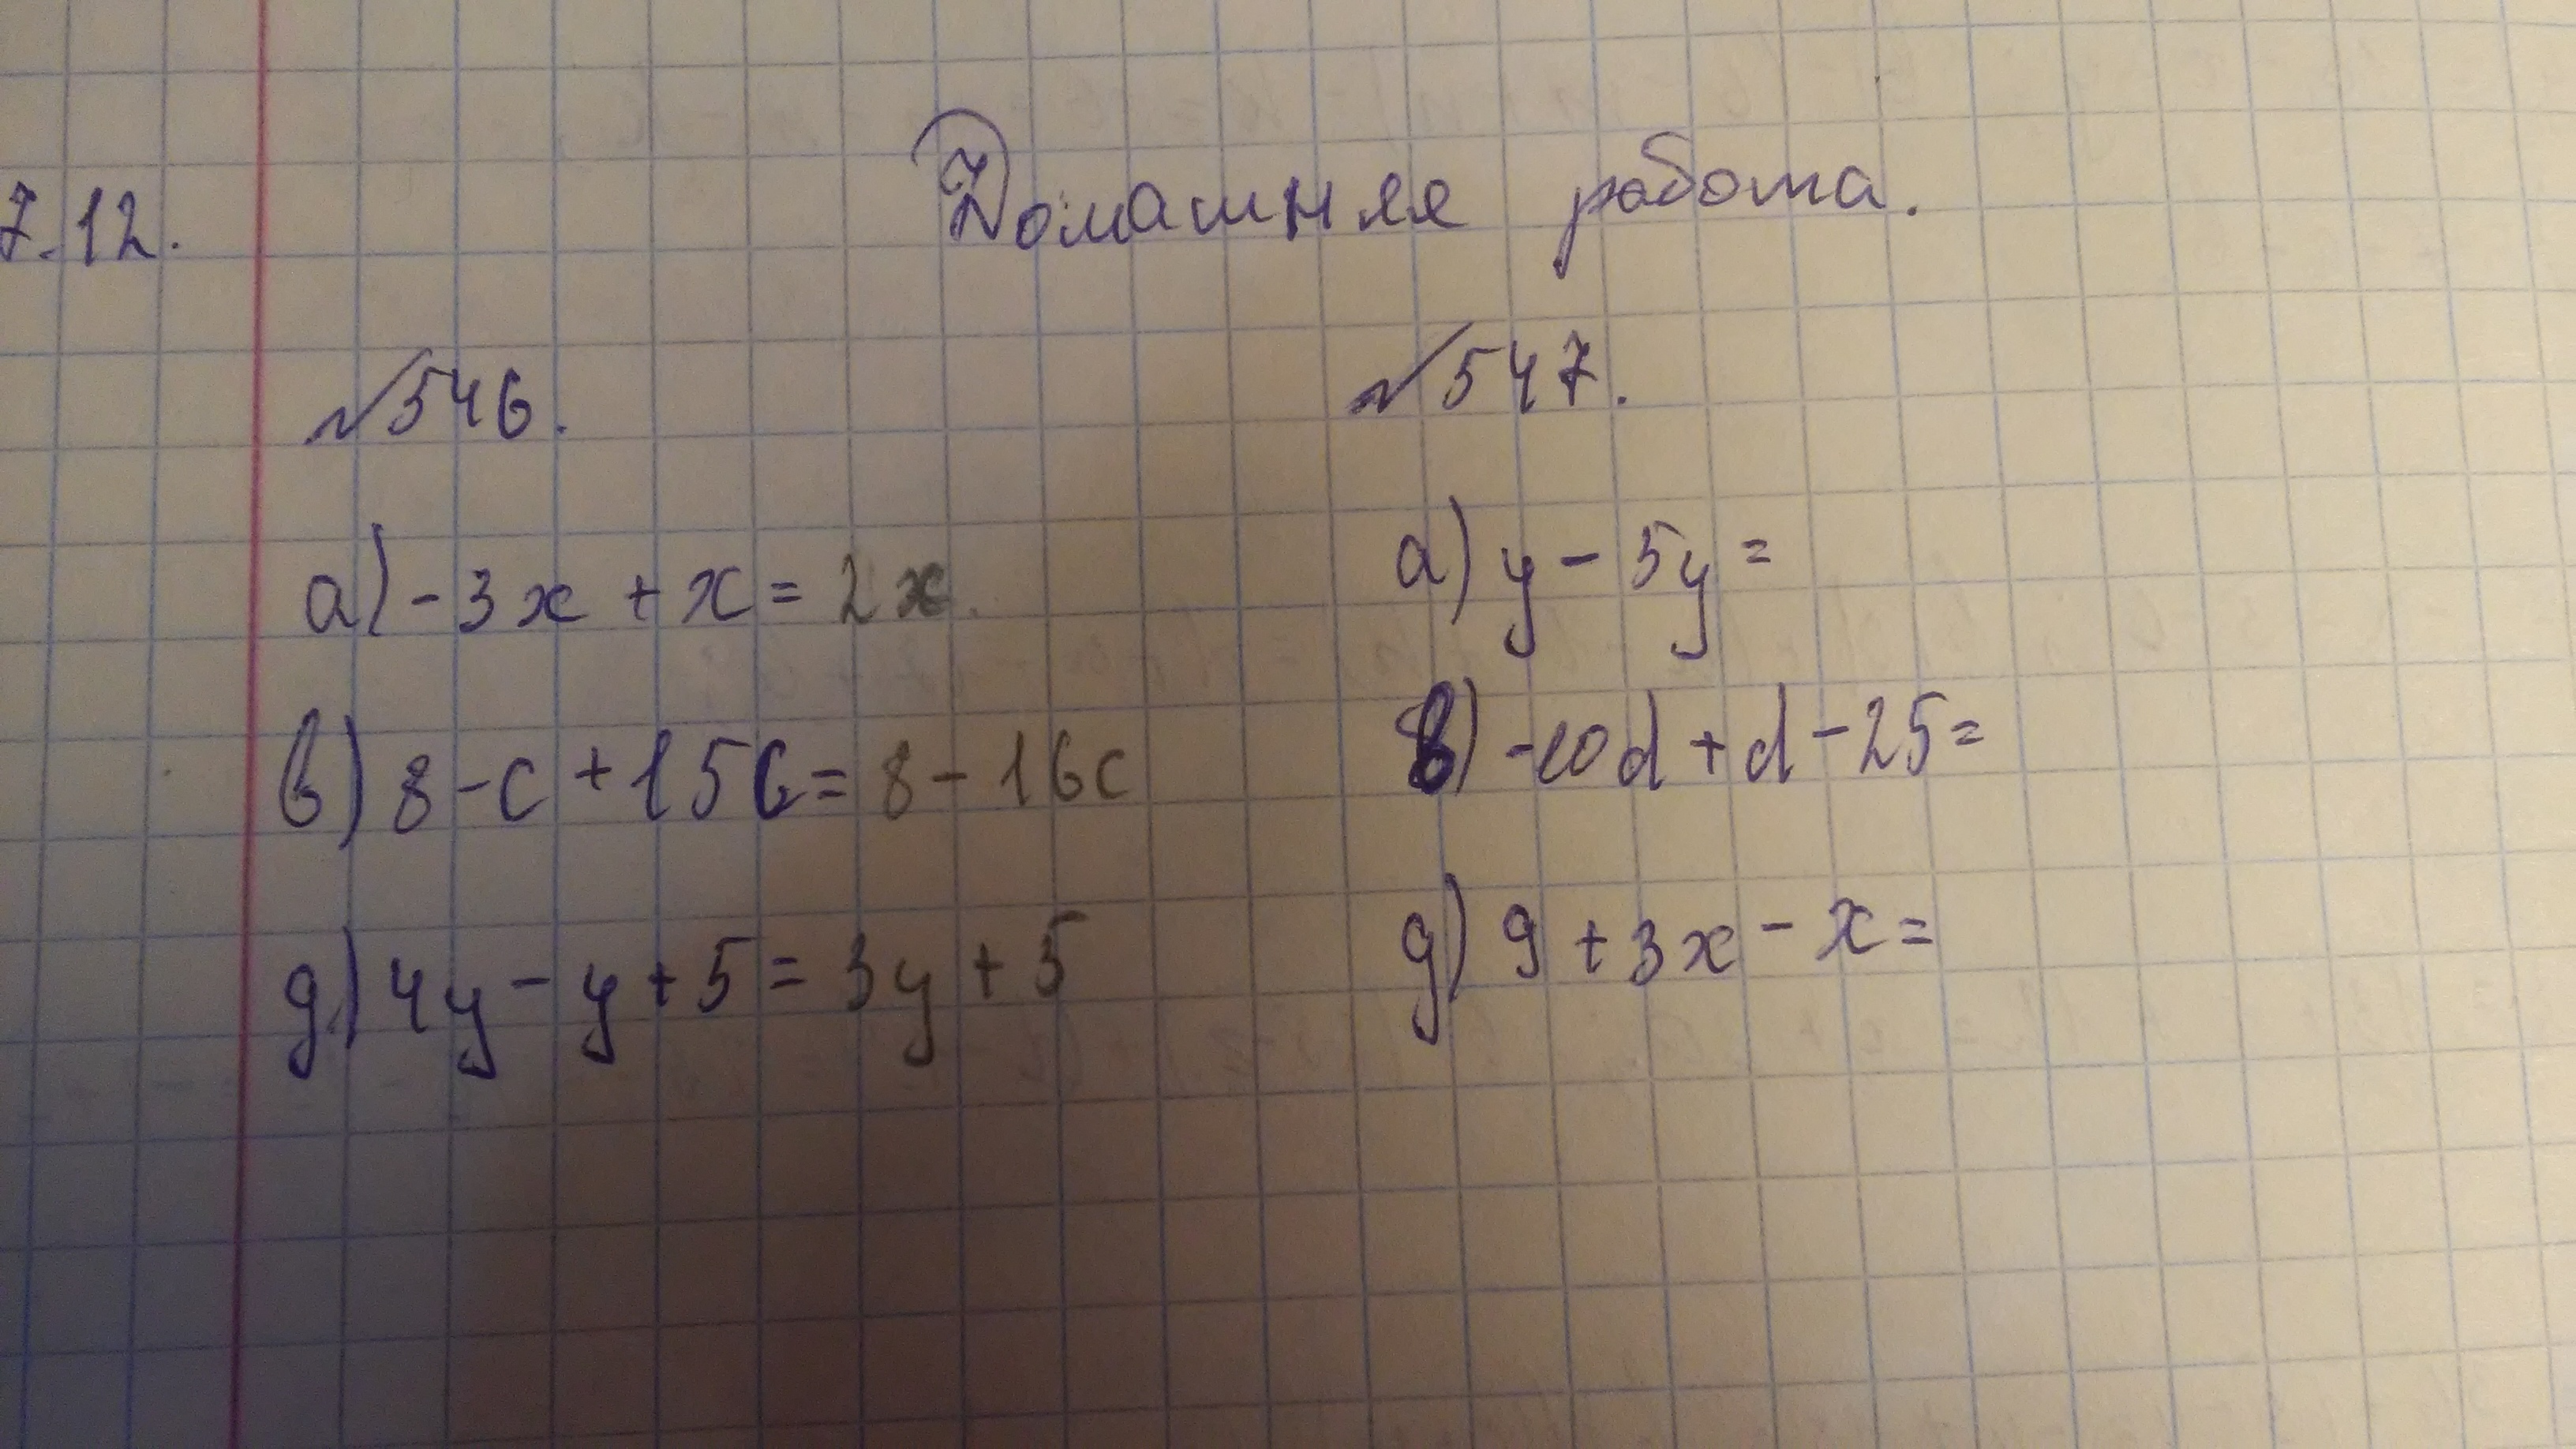 7.12. Домашняя работа.
№546. №547.
а) -3x + x = 2x. а) y - 5y =
в) 8 - c + 15c = 8 - 16c в) -10d + d - 25 =
д) 4y - y + 5 = 3y + 5 д) 9 + 3x - x =